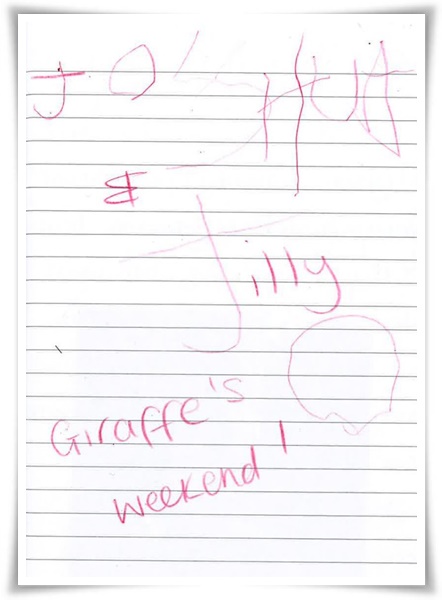 JOSHUA
&
Jilly
Giraffe's
weekend!